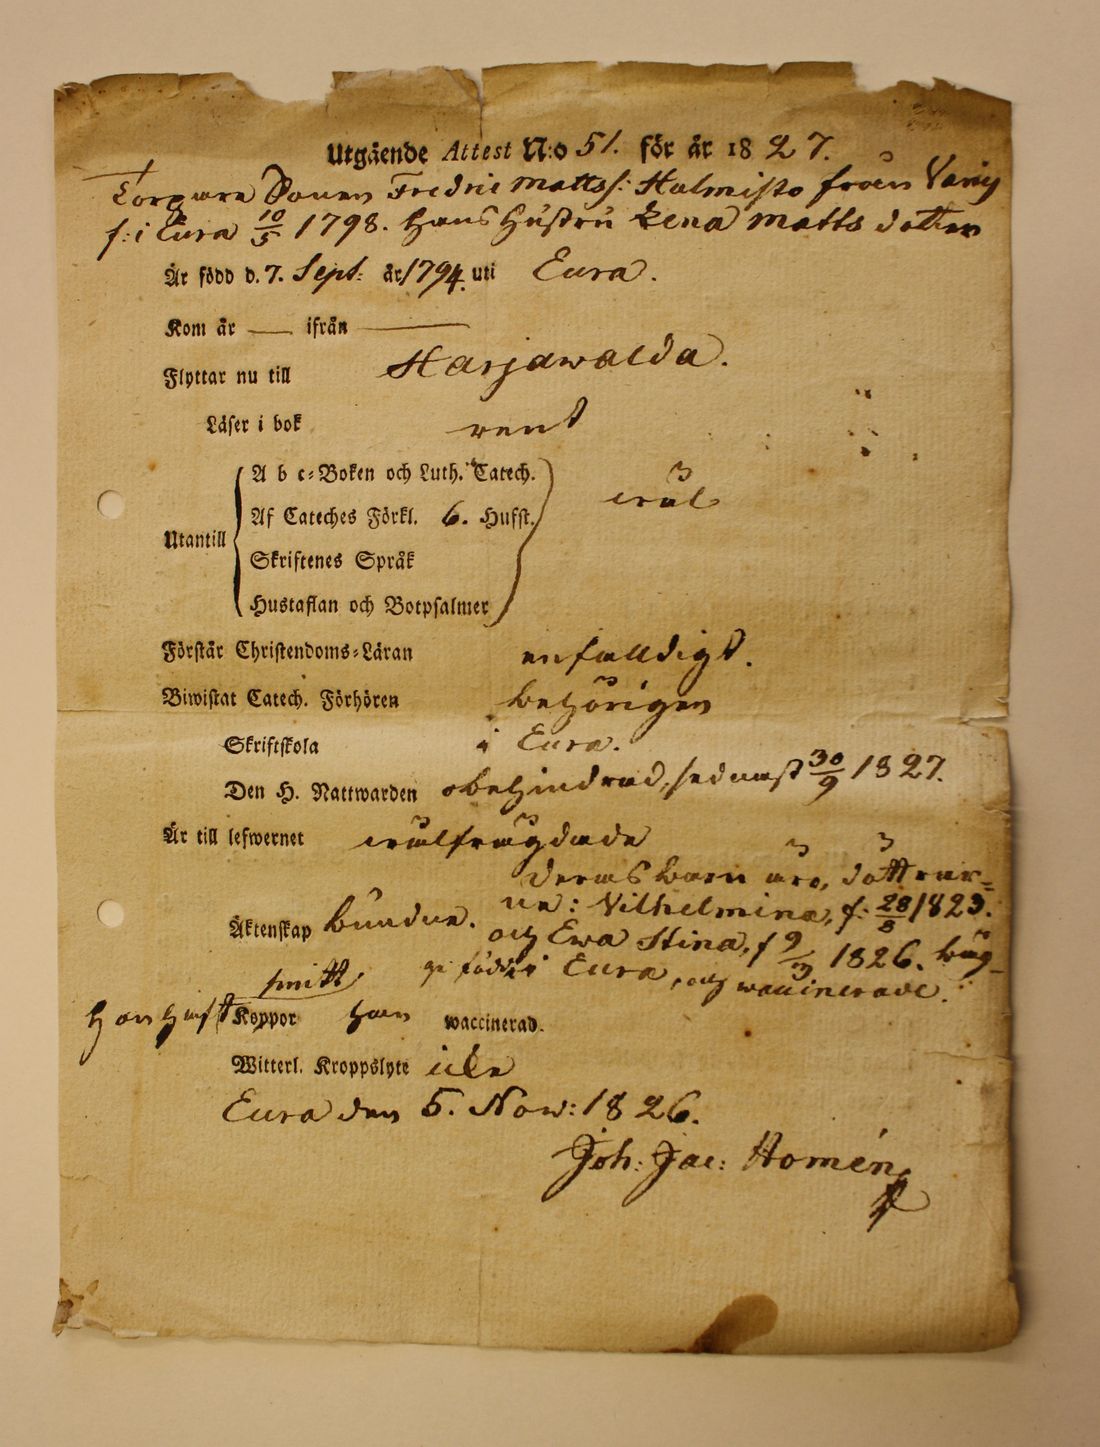 Utgående Attest N:o 51. för år 1827.
Torpare Sonen Fredric Mattss: Holmisto från
f: i Eura 10/5 1798. Hans Hustru Lena Matts dotter
Är född d. 7. Sept: år 1794. uti Eura.
Kom år — ifrån —
Flyttar nu till Harjawalda.
Läser i bok rent
Utantill
A b c-Boken och Luth. Catech.
wäl
Af Cateches Förkl. 6. Hufst.
Skriftenes Språk
Hustaflan och Botpsalmer
Förstår Christendoms-Läran enfalldigt.
Biwistat Catech. Förhören behörigen
Skriftskola i Eura.
Den H. Nattwarden obehindrad, sednast 30/9 1827.
Är till lefwernet wälfrägdade
deras barn äro, döttrar-
Äktenskap bundne. ne: Vilhelmina, f: 28/8 1823.
och Ewa Stina, f 9/3 1826. bäg-
ge födde i Eura, och waccinerade.
hon haft Koppor han waccinerad.
Witterl. Kroppslyte icke
Eura den 5. Now: 1826.
Joh: Jac: Homén